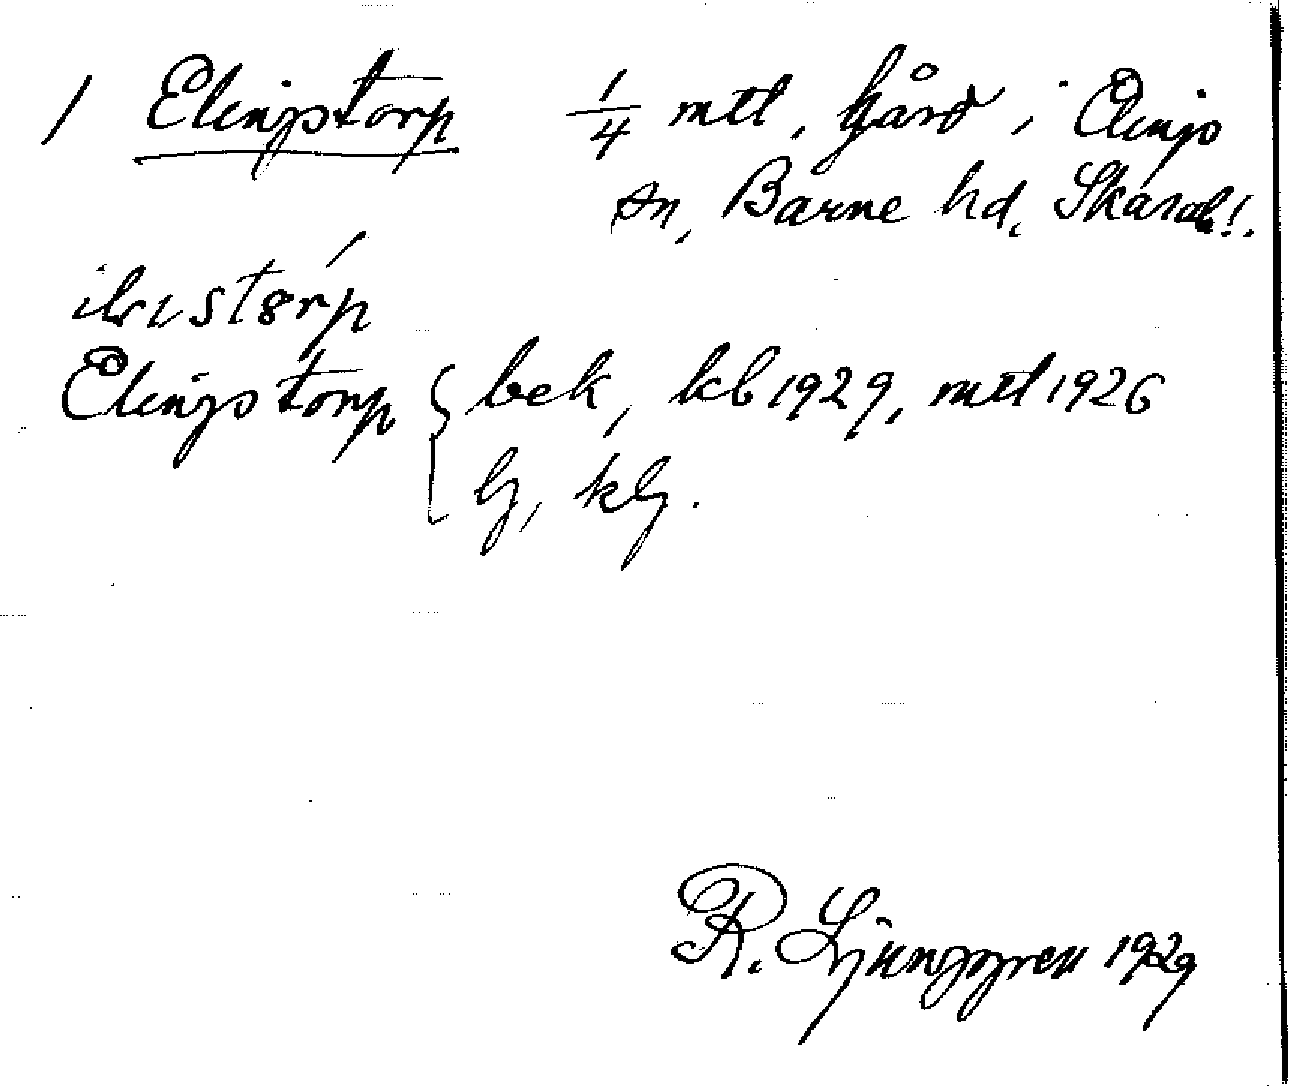 1 Elingstorp 1/4 mtl, gård i Elings
sn, Barne hd, Skarab!.
Elingstorp { bek, kb 1929, mtl 1926
kg.
R. Ljunggren 1929